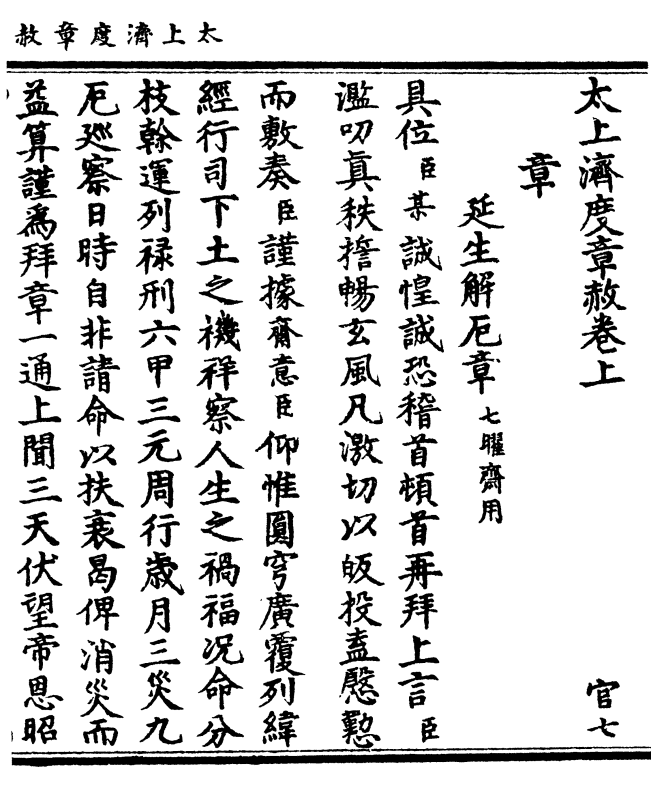 太上濟度章赦
太上濟度章赦卷上 官七
章
延生解厄章 七曜齋用
具位臣某誠惶誠恐稽首頓首再拜上言臣
濫叨眞秩擔暢玄風凡激切以皈投盍慇懃
而敷奏臣謹據齋意臣仰惟圓穹廣覆列緯
經行司下土之禨祥察人生之禍福况命分
枝榦運列禄刑六甲三元周行歲月三災九
厄廵察日時自非請命以扶衰曷俾消災而
益算謹爲拜章一通上聞三天伏望帝恩昭